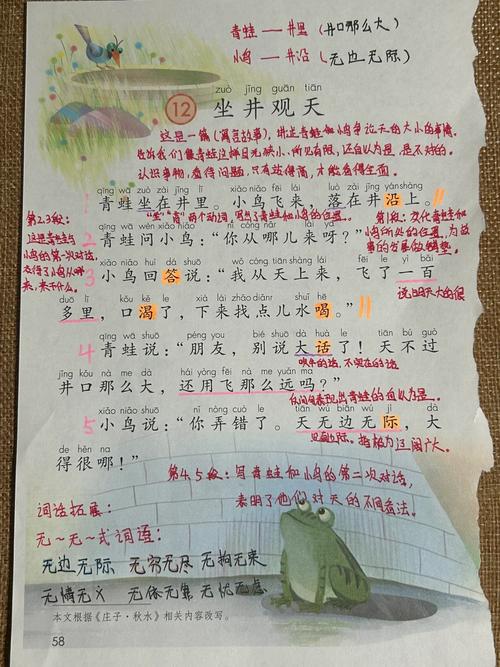 青蛙——井里（井口那么大）
小鸟——井沿（无边无际）
zuò jǐng guān tiān
12 坐井观天
这是一篇（寓言故事），讲述青蛙和小鸟争论天的大小的事情。
告诉我们像青蛙这样目光狭小、所见有限，还自以为是，是不对的。
认识事物，看待问题，只有站得高，才能看得全面。
qīng wā zuò zài jǐng lǐ xiǎo niǎo fēi lái luò zài jǐng yán shàng
1 青蛙坐在井里。小鸟飞来，落在井沿上。
第2、3段：
这是青蛙与
小鸟的第一次对话，
"坐""落"两个动词，写出了青蛙和小鸟的位置。
第1段：交代青蛙和
小鸟所处的位置，为故
事的发展做铺垫。
qīng wā wèn xiǎo niǎo nǐ cóng nǎr lái ya
2 青蛙问小鸟：“你从哪儿来呀？”
xiǎo niǎo huí dá shuō wǒ cóng tiān shàng lái fēi le yì bǎi
3 小鸟回答说：“我从天上来，飞了一百
说明天大的很
duō lǐ kǒu kě le xià lái zhǎo diǎnr shuǐ hē
多里，口渴了，下来找点儿水喝。”
qīng wā shuō péng you bié shuō dà huà le tiān bú guò
4 青蛙说：“朋友，别说大话了！天不过
吹牛的话、不实在的话
jǐng kǒu nà me dà hái yòng fēi nà me yuǎn ma
井口那么大，还用飞那么远吗？”
反问句表现出青蛙的自以为是。
xiǎo niǎo shuō nǐ nòng cuò le tiān wú biān wú jì dà
5 小鸟说：“你弄错了。天无边无际，大
de hěn na
得很哪！”
第4、5段：写青蛙和小鸟的第二次对话，
表明了他们对天的不同看法。
词语拓展：
无～无～式词语：
无边无际 无穷无尽 无拘无束
无情无义 无依无靠 无忧无虑
本文根据《庄子·秋水》相关内容改写。
58